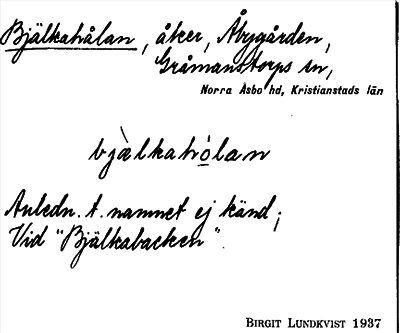 Bjälkahålan, åker, Åbygården,
Gråmanstorps sn,
Norra Åsbo hd, Kristianstads län
bjælkahòlan
Anledn. t. namnet ej känd;
Vid "Bjälkabacken".
BIRGIT LUNDKVIST 1937